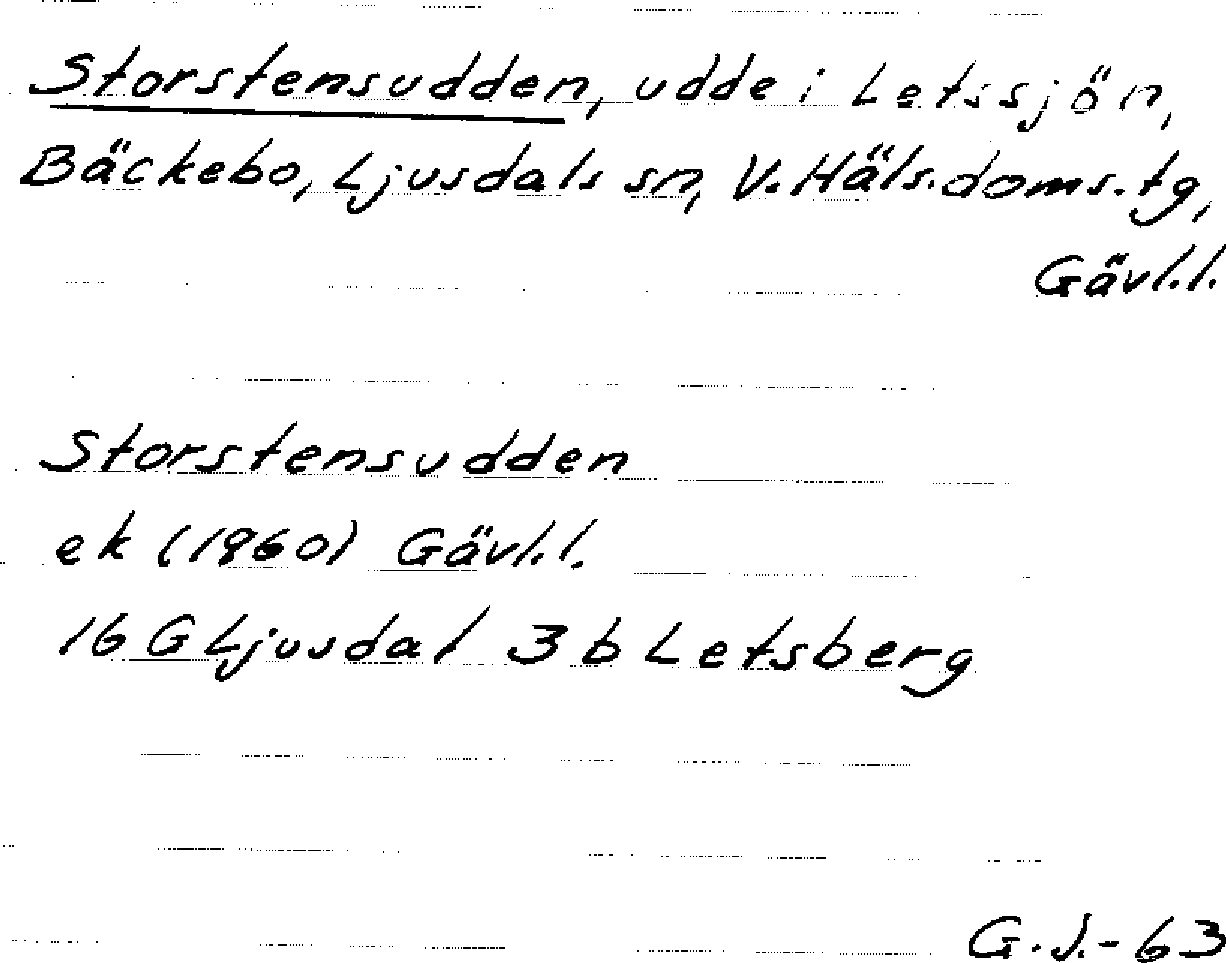 Storstensudden, udde i Letssjön,
Bäckebo, Ljusdals sn, V. Häls. doms. tg,
Gävl.l.
Storstensudden
ek (1960) Gävl.l.
16 G Ljusdal 3 b Letsberg
G.J.-63